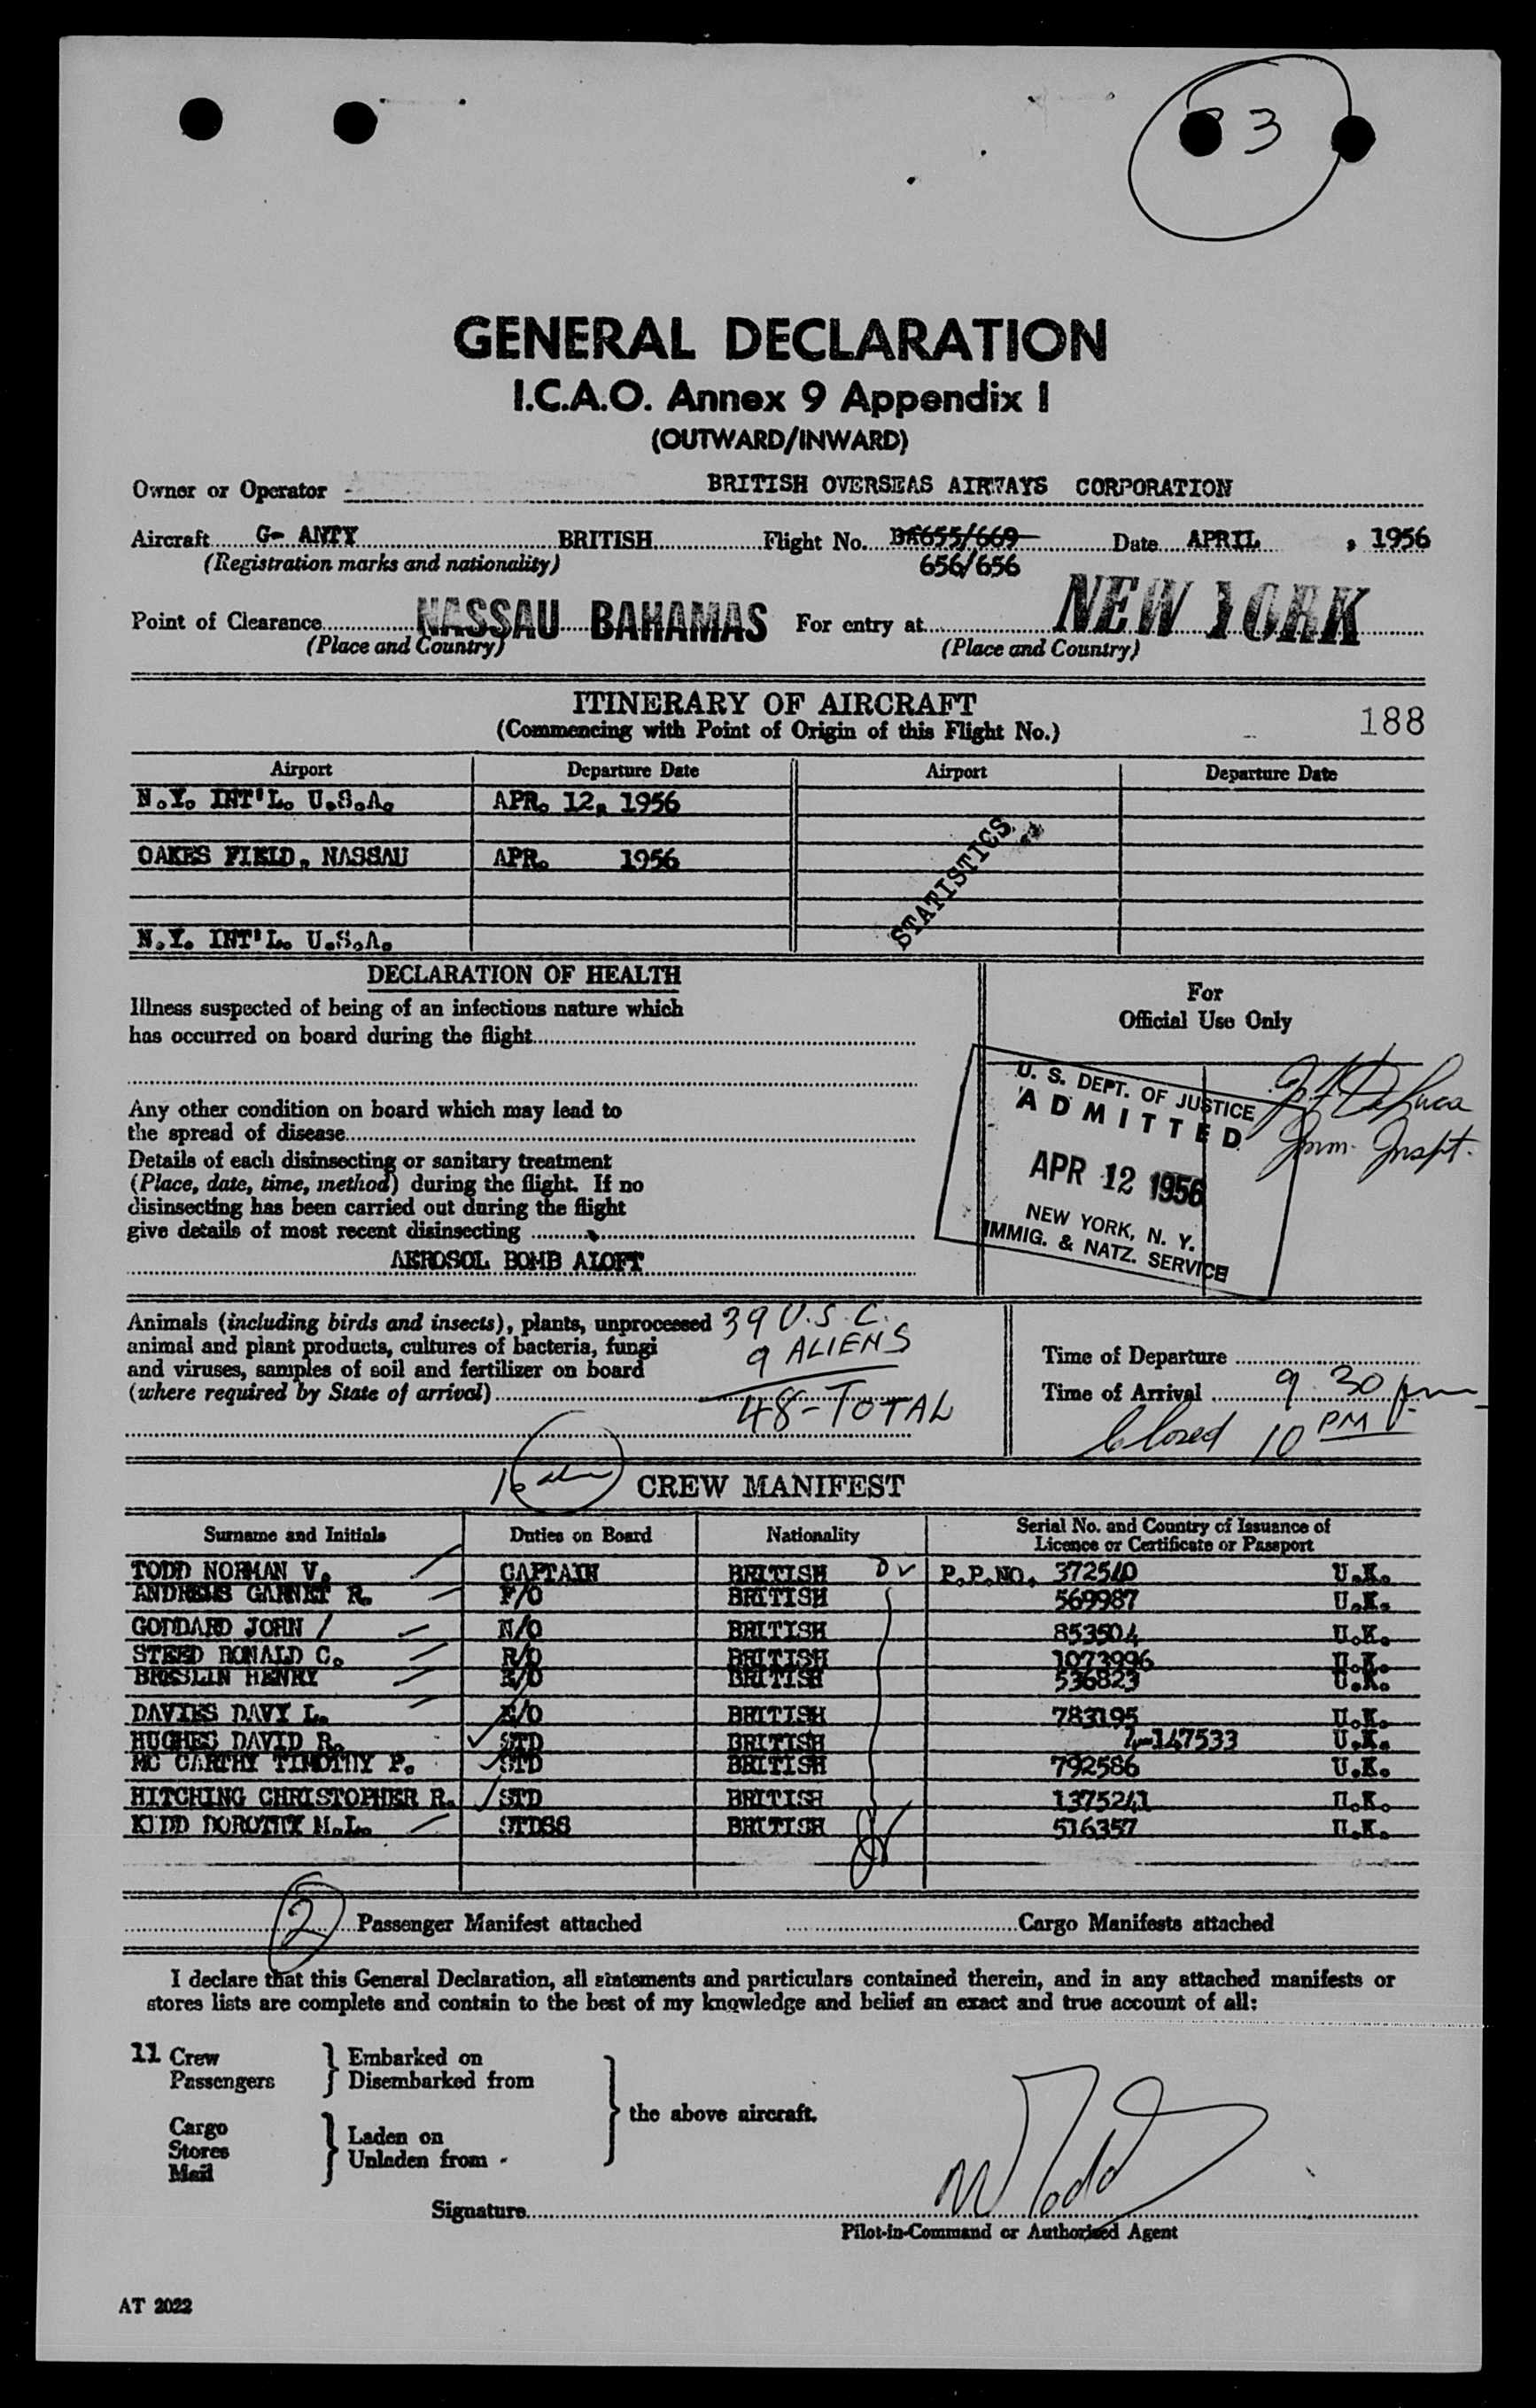 3
GENERAL DECLARATION
I.C.A.O. Annex 9 Appendix 1
(OUTWARD/INWARD)
Owner or Operator BRITISH OVERSEAS AIRWAYS CORPORATION
Aircraft G- ANTY BRITISH Flight No. BA655/669 Date APRIL , 1956
(Registration marks and nationality) 656/656
Point of Clearance NASSAU BAHAMAS For entry at NEW YORK
(Place and Country) (Place and Country)
ITINERARY OF AIRCRAFT
(Commencing with Point of Origin of this Flight No.) 188
Airport Departure Date Airport Departure Date
N.Y. INT'L. U.S.A. APR. 12, 1956
OAKES FIELD, NASSAU APR. 1956
STATISTICS
N.Y. INT'L. U.S.A.
DECLARATION OF HEALTH
Illness suspected of being of an infectious nature which
has occurred on board during the flight
Any other condition on board which may lead to
the spread of disease
Details of each disinsecting or sanitary treatment
(Place, date, time, method) during the flight. If no
disinsecting has been carried out during the flight
give details of most recent disinsecting
AEROSOL BOMB ALOFT
For
Official Use Only
U. S. DEPT. OF JUSTICE
ADMITTED
APR 12 1956
NEW YORK, N. Y.
IMMIG. & NATZ. SERVICE
DeLuca
Imm. Inspt.
Animals (including birds and insects), plants, unprocessed 39 U.S.C.
animal and plant products, cultures of bacteria, fungi 9 ALIENS
and viruses, samples of soil and fertilizer on board
(where required by State of arrival) 48-TOTAL
Time of Departure
Time of Arrival 9 30 pm
Closed 10 PM
CREW MANIFEST
Surname and Initials Duties on Board Nationality Serial No. and Country of Issuance of
Licence or Certificate or Passport
TODD NORMAN V. CAPTAIN BRITISH P.P.NO. 372540 U.K.
ANDREWS GARNET R. F/O BRITISH 569987 U.K.
GODDARD JOHN / N/O BRITISH 853504 U.K.
STEED RONALD C. R/O BRITISH 1073996 U.K.
BRESLIN HENRY E/O BRITISH 536823 U.K.
DAVIES DAVY L. E/O BRITISH 783195 U.K.
HUGHES DAVID R. STD BRITISH L-147533 U.K.
MC CARTHY TIMOTHY P. STD BRITISH 792586 U.K.
HITCHING CHRISTOPHER R. STD BRITISH 1375241 U.K.
KIDD DOROTHY M.L. STDSS BRITISH 516357 U.K.
2 Passenger Manifest attached Cargo Manifests attached
I declare that this General Declaration, all statements and particulars contained therein, and in any attached manifests or
stores lists are complete and contain to the best of my knowledge and belief an exact and true account of all:
11 Crew
Passengers
Embarked on
Disembarked from
Cargo
Stores
Mail
Laden on
Unladen from
the above aircraft.
Signature N Todd
Pilot-in-Command or Authorised Agent
AT 2022